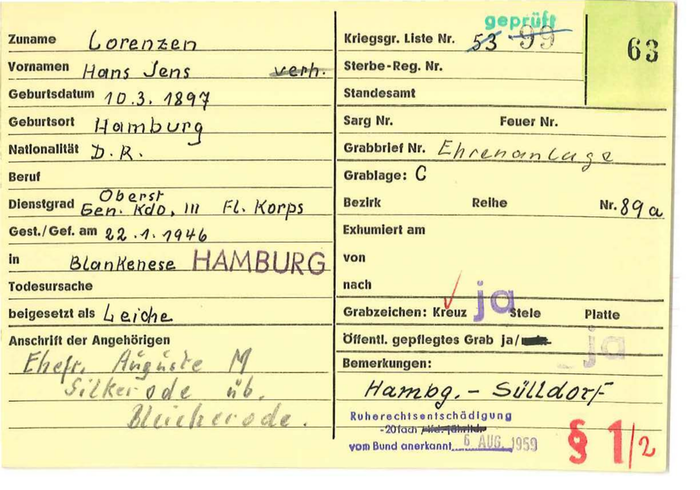 Zuname Lorenzen
Vornamen Hans Jens verh.
Geburtsdatum 10.3.1897
Geburtsort Hamburg
Nationalität D.R.
Beruf
Dienstgrad Oberst
Gen. Kdo, III Fl. Korps
Gest./Gef. am 22.1.1946
in Blankenese HAMBURG
Todesursache
beigesetzt als Leiche
Anschrift der Angehörigen
Ehefr. Auguste M
Silkerode üb.
Bleicherode.
geprüft
Kriegsgr. Liste Nr. 53 99
63
Sterbe-Reg. Nr.
Standesamt
Sarg Nr. Feuer Nr.
Grabbrief Nr. Ehrenanlage
Grablage: C
Bezirk Reihe Nr. 89a
Exhumiert am
von
nach
Grabzeichen: Kreuz ja Stele Platte
Öffentl. gepflegtes Grab ja/ ja
Bemerkungen:
Hambg. - Sülldorf
Ruherechtsentschädigung
-20fach
vom Bund anerkannt 6. AUG. 1959
§ 1/2